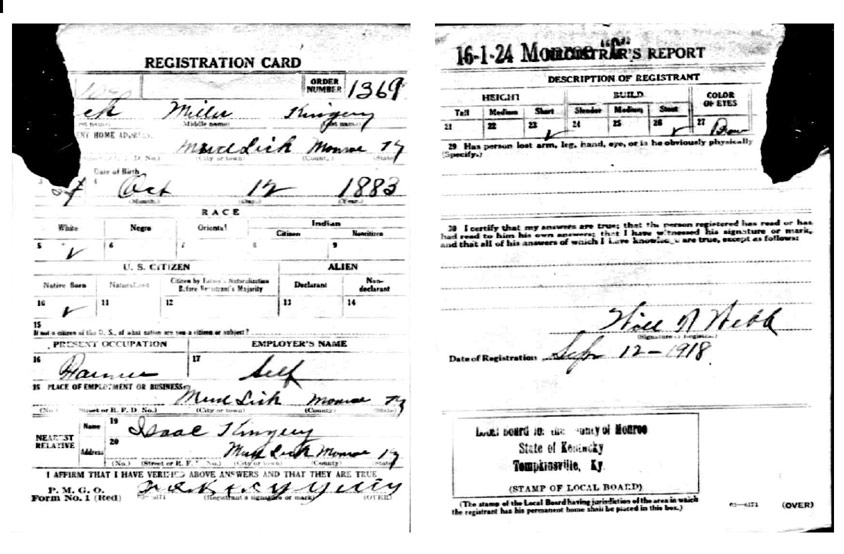 REGISTRATION CARD
ORDER
NUMBER 1369
Miller Kingery
Middle name)
HOME
Mud Lick Monroe Ky
(City or town) (County) (State)
Date of Birth
Oct 12 1883
(Month.) (Day.) (Year.)
RACE
White Negro Oriental Indian
Citizen Noncitizen
5 ✓ 6 7 8 9
U. S. CITIZEN ALIEN
Native Born Naturalized Citizen by Father's Naturalization
Before Registrant's Majority Declarant Non-
declarant
10 ✓ 11 12 13 14
15
If not a citizen of the U. S., of what nation are you a citizen or subject?
PRESENT OCCUPATION EMPLOYER'S NAME
16 Farmer 17 Self
18 PLACE OF EMPLOYMENT OR BUSINESS:
Mud Lick Monroe Ky
(No.) (Street or R. F. D. No.) (City or town) (County) (State)
NEAREST
RELATIVE
Name 19 Isaac Kingery
Address 20 Mud Lick Monroe Ky
(No.) (Street or R. F. D. No.) (City or town) (County) (State)
I AFFIRM THAT I HAVE VERIFIED ABOVE ANSWERS AND THAT THEY ARE TRUE
P. M. G. O.
Form No. 1 (Red) (Registrant's signature or mark) (OVER)
16-1-24 Monroe "C"
REGISTRAR'S REPORT
DESCRIPTION OF REGISTRANT
HEIGHT BUILD COLOR
OF EYES
Tall Medium Short Slender Medium Stout
21 22 23 ✓ 24 25 26 ✓ 27 Brown
29 Has person lost arm, leg, hand, eye, or is he obviously physically
(Specify.)
30 I certify that my answers are true; that the person registered has read or has
had read to him his own answers; that I have witnessed his signature or mark,
and that all of his answers of which I have knowledge are true, except as follows:
Will N Webb
(Signature of Registrar)
Date of Registration Sep 12-1918
Local Board for the County of Monroe
State of Kentucky
Tompkinsville, Ky.
(STAMP OF LOCAL BOARD)
(The stamp of the Local Board having jurisdiction of the area in which
the registrant has his permanent home shall be placed in this box.)
(OVER)